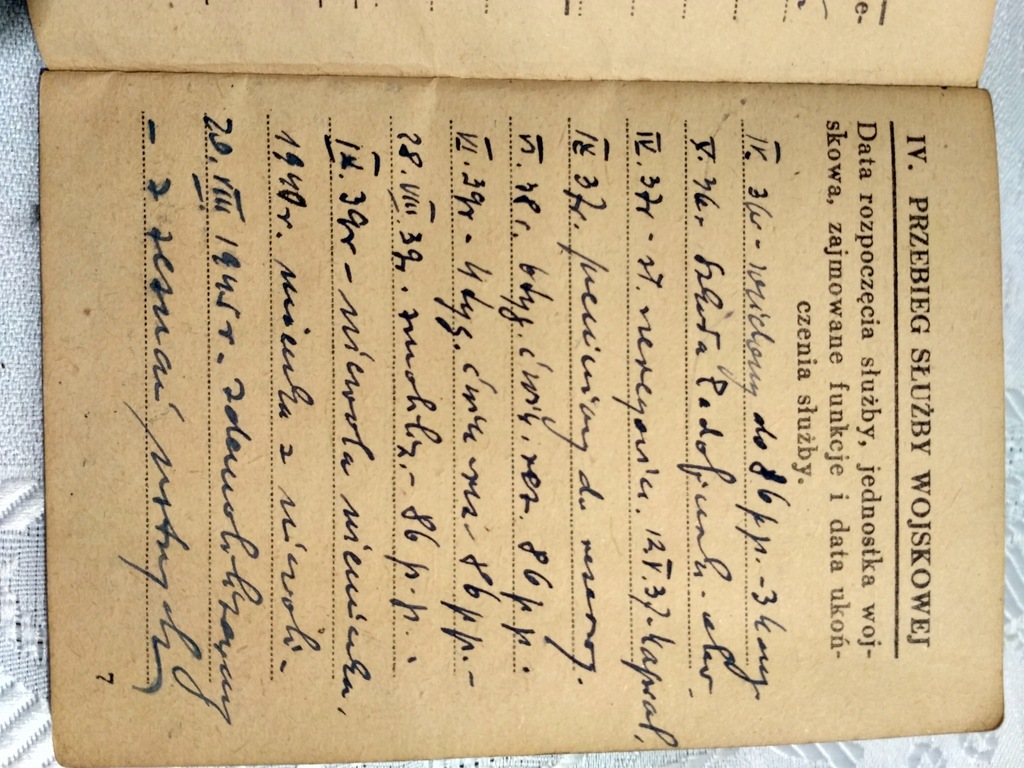 IV. PRZEBIEG SŁUŻBY WOJSKOWEJ
Data rozpoczęcia służby, jednostka woj-
skowa, zajmowane funkcje i data ukoń-
czenia służby.
IV. 36r - wcielony do 86 p.p. - 3 komp.
V. 36r Szkoła Podofic.
IV. 37r - st. 12.V.37. kapral.
IX 37r. przeniesiony do rezerwy.
VI. 38 r. ćwicz. rez. 86 pp.
VI. 39r - ćwicz. rez. 86 pp. -
28.VIII.39r. mobiliz. - 86 p.p.
IX.39r - niewola niemiecka,
1940r. ucieczka z niewoli -
20.VIII 1945 r. zdemobilizowany
- z zeznań ustnych
7